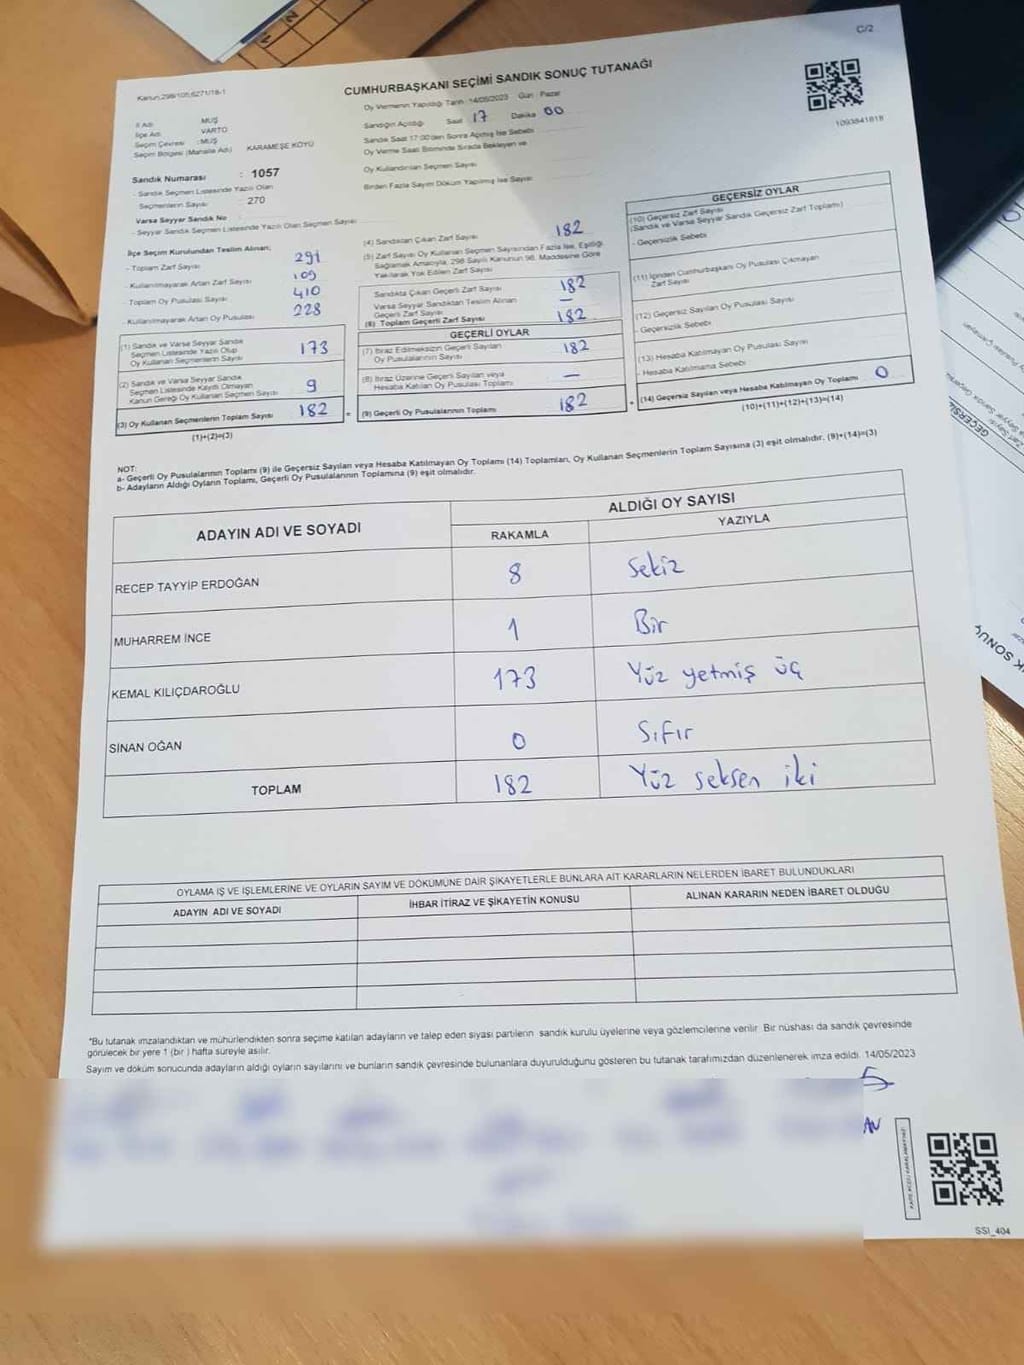 C/2
Kanun:298/105,6271/18-1
CUMHURBAŞKANI SEÇİMİ SANDIK SONUÇ TUTANAĞI
Oy Vermenin Yapıldığı Tarih :14/05/2023 Gün : Pazar
İl Adı : MUŞ
İlçe Adı : VARTO
Seçim Çevresi : MUŞ
Seçim Bölgesi (Mahalle Adı) KARAMEŞE KÖYÜ
Sandığın Açıldığı Saat 17 Dakika 00
Sandık Saat 17:00'den Sonra Açılmış İse Sebebi
Oy Verme Saati Bitiminde Sırada Bekleyen ve
Oy Kullandırılan Seçmen Sayısı
Birden Fazla Sayım Döküm Yapılmış İse Sayısı
1093841818
Sandık Numarası : 1057
- Sandık Seçmen Listesinde Yazılı Olan
Seçmenlerin Sayısı : 270
Varsa Seyyar Sandık No
- Seyyar Sandık Seçmen Listesinde Yazılı Olan Seçmen Sayısı
İlçe Seçim Kurulundan Teslim Alınan;
- Toplam Zarf Sayısı 291
- Kullanılmayarak Artan Zarf Sayısı 109
- Toplam Oy Pusulası Sayısı 410
- Kullanılmayarak Artan Oy Pusulası 228
(1) Sandık ve Varsa Seyyar Sandık
Seçmen Listesinde Yazılı Olup
Oy Kullanan Seçmenlerin Sayısı 173
(2) Sandık ve Varsa Seyyar Sandık
Seçmen Listesinde Kayıtlı Olmayan
Kanun Gereği Oy Kullanan Seçmen Sayısı 9
(3) Oy Kullanan Seçmenlerin Toplam Sayısı 182
(1)+(2)=(3)
(4) Sandıktan Çıkan Zarf Sayısı 182
(5) Zarf Sayısı Oy Kullanan Seçmen Sayısından Fazla İse, Eşitliği
Sağlamak Amacıyla, 298 Sayılı Kanunun 98. Maddesine Göre
Yakılarak Yok Edilen Zarf Sayısı
Sandıkta Çıkan Geçerli Zarf Sayısı 182
Varsa Seyyar Sandıktan Teslim Alınan
Geçerli Zarf Sayısı —
(6) Toplam Geçerli Zarf Sayısı 182
GEÇERLİ OYLAR
(7) İtiraz Edilmeksizin Geçerli Sayılan
Oy Pusulalarının Sayısı 182
(8) İtiraz Üzerine Geçerli Sayılan veya
Hesaba Katılan Oy Pusulası Toplamı —
= (9) Geçerli Oy Pusulalarının Toplamı 182
GEÇERSİZ OYLAR
(10) Geçersiz Zarf Sayısı
(Sandık ve Varsa Seyyar Sandık Geçersiz Zarf Toplamı)
- Geçersizlik Sebebi
(11) İçinden Cumhurbaşkanı Oy Pusulası Çıkmayan
Zarf Sayısı
(12) Geçersiz Sayılan Oy Pusulası Sayısı
- Geçersizlik Sebebi
(13) Hesaba Katılmayan Oy Pusulası Sayısı
- Hesaba Katılmama Sebebi
+ (14) Geçersiz Sayılan veya Hesaba Katılmayan Oy Toplamı 0
(10)+(11)+(12)+(13)=(14)
NOT:
a- Geçerli Oy Pusulalarının Toplamı (9) ile Geçersiz Sayılan veya Hesaba Katılmayan Oy Toplamı (14) Toplamları, Oy Kullanan Seçmenlerin Toplam Sayısına (3) eşit olmalıdır. (9)+(14)=(3)
b- Adayların Aldığı Oyların Toplamı, Geçerli Oy Pusulalarının Toplamına (9) eşit olmalıdır.
ADAYIN ADI VE SOYADI
ALDIĞI OY SAYISI
RAKAMLA YAZIYLA
RECEP TAYYİP ERDOĞAN 8 Sekiz
MUHARREM İNCE 1 Bir
KEMAL KILIÇDAROĞLU 173 Yüz yetmiş üç
SİNAN OĞAN 0 Sıfır
TOPLAM 182 Yüz seksen iki
OYLAMA İŞ VE İŞLEMLERİNE VE OYLARIN SAYIM VE DÖKÜMÜNE DAİR ŞİKAYETLERLE BUNLARA AİT KARARLARIN NELERDEN İBARET BULUNDUKLARI
ADAYIN ADI VE SOYADI İHBAR İTİRAZ VE ŞİKAYETİN KONUSU ALINAN KARARIN NEDEN İBARET OLDUĞU
*Bu tutanak imzalandıktan ve mühürlendikten sonra seçime katılan adayların ve talep eden siyasi partilerin sandık kurulu üyelerine veya gözlemcilerine verilir. Bir nüshası da sandık çevresinde
görülecek bir yere 1 (bir) hafta süreyle asılır.
Sayım ve döküm sonucunda adayların aldığı oyların sayılarını ve bunların sandık çevresinde bulunanlara duyurulduğunu gösteren bu tutanak tarafımızdan düzenlenerek imza edildi. 14/05/2023
AN
SSI_404
GEÇERSİZ
SONUÇ